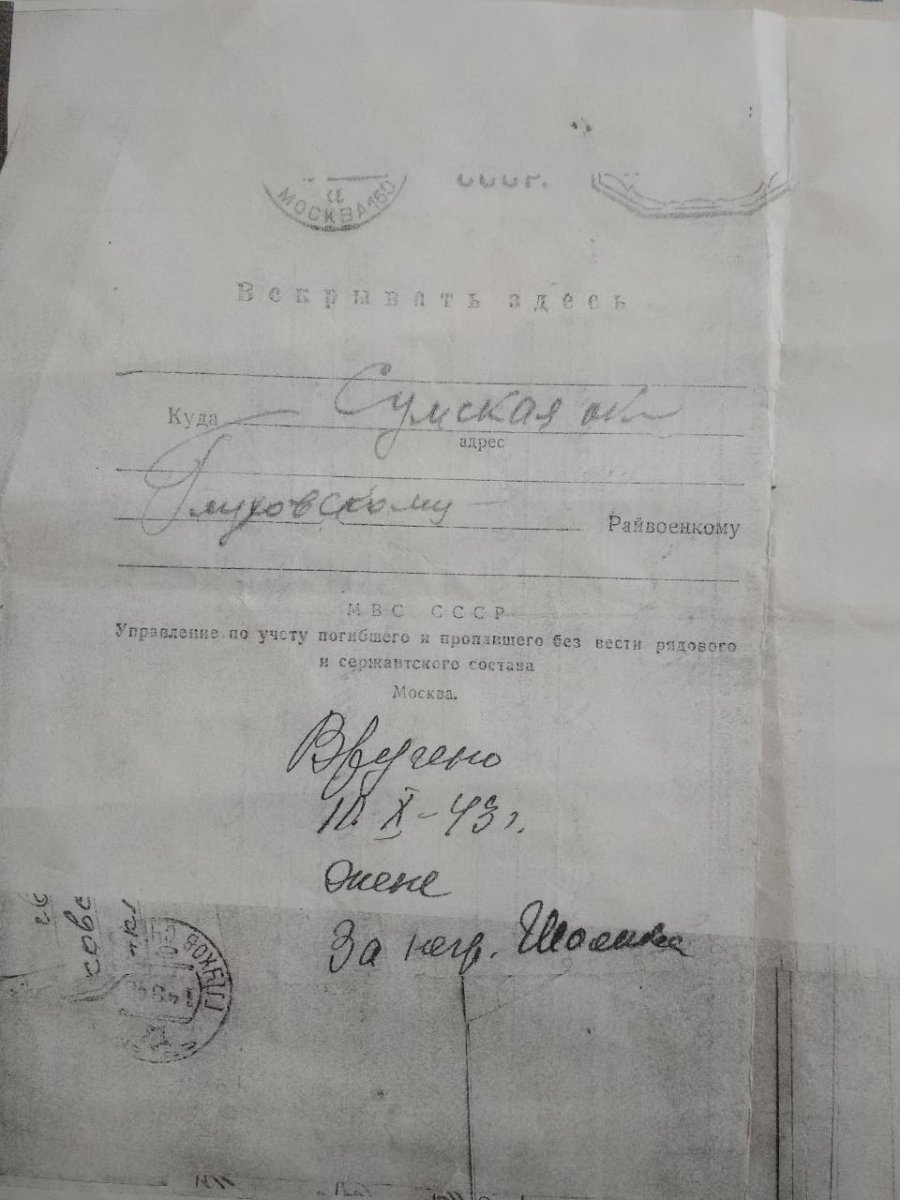 а
МОСКВА 150
СССР.
Вскрывать здесь
Куда Сумская обл
адрес
Глуховскому Райвоенкому
МВС СССР
Управление по учету погибшего и пропавшего без вести рядового
и сержантского состава
Москва.
Вручено
10 X-43 г.
жене
За негр.
ГЛУХОВ